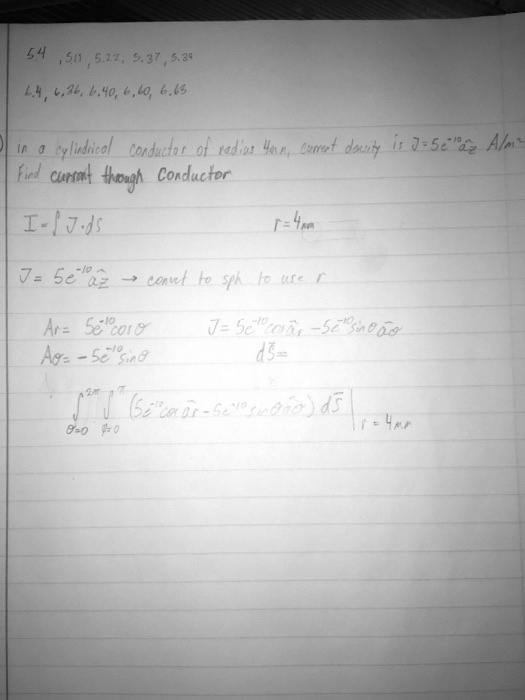 5.4, 5.11, 5.22, 5.37, 5.39
6.4, 6.26, 6.40, 6.60, 6.65
) in a cylindrical conductor of radius 4mm, current density is J=5e^-10 âz A/m²
Find current through Conductor
I=∫J·ds r=4mm
J= 5e^-10 âz → convert to sph to use r
Ar= 5e^-10 cosθ J= 5e^-10 cosθ âr -5e^-10 sinθ âθ
Aθ= -5e^-10 sinθ ds̄=
∫θ=0^2π ∫φ=0^π (5e^-10 cosθ âr -5e^-10 sinθ âθ) ds̄ | r=4mm